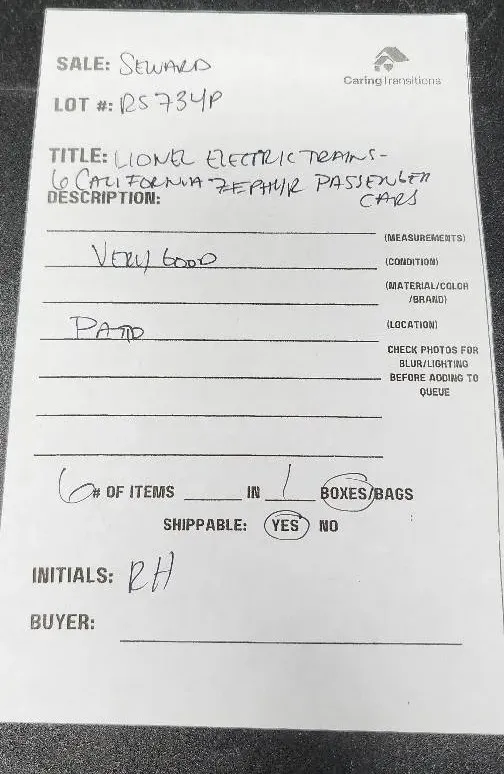 SALE: SEWARD
CaringTransitions
LOT #: RS734P
TITLE: LIONEL ELECTRIC TRAINS-
6 CALIFORNIA ZEPHYR PASSENGER
CARS
DESCRIPTION:
(MEASUREMENTS)
VERY GOOD (CONDITION)
(MATERIAL/COLOR
/BRAND)
PATIO (LOCATION)
CHECK PHOTOS FOR
BLUR/LIGHTING
BEFORE ADDING TO
QUEUE
6 # OF ITEMS IN 1 BOXES/BAGS
SHIPPABLE: YES NO
INITIALS: RH
BUYER: